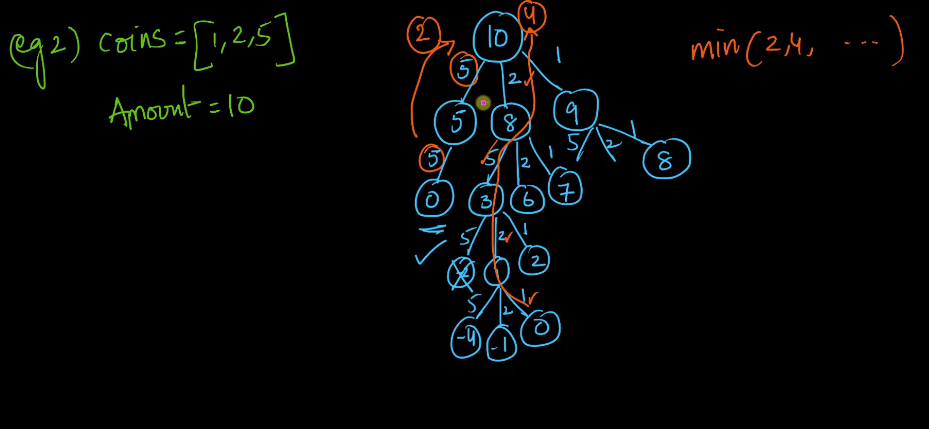 eg 2) coins = [1,2,5]
Amount = 10
2 4 min(2,4, ...)
10
5 2 1
5 8 9
5 5 2 1 5 2 1
0 3 6 7 8
5 2 1
1 2
5 2 1
-4 -1 0